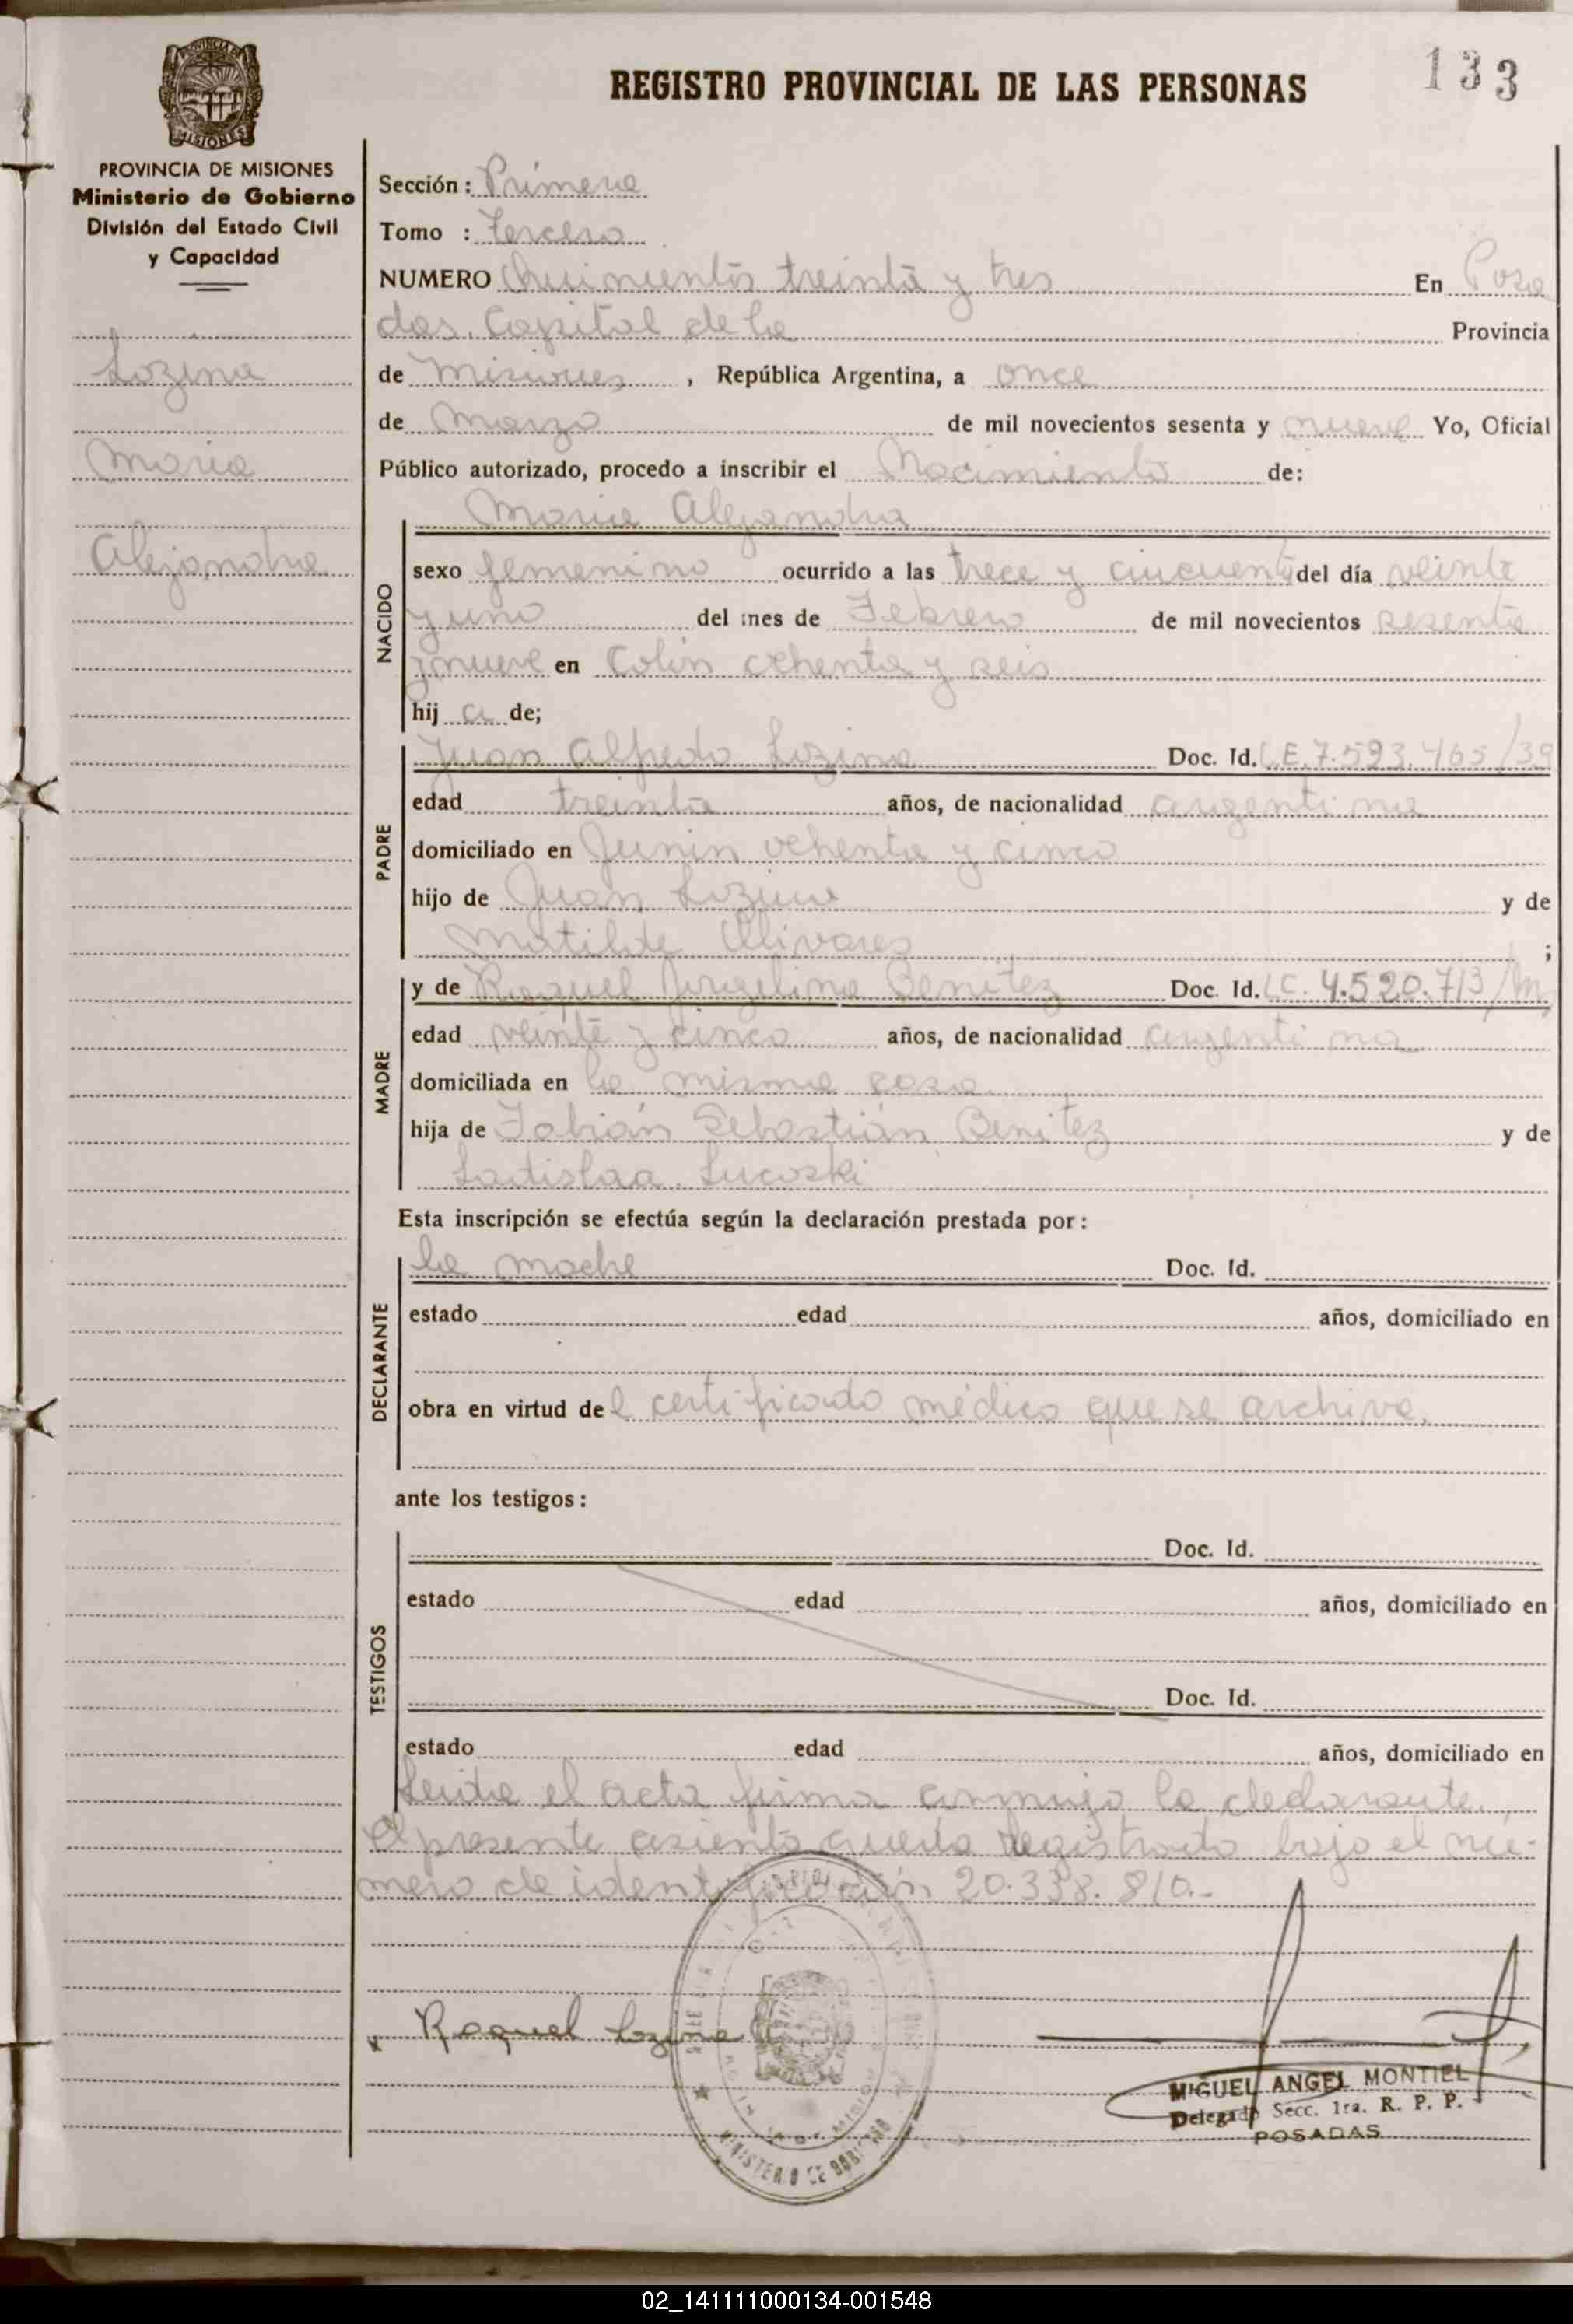 133
REGISTRO PROVINCIAL DE LAS PERSONAS
PROVINCIA DE MISIONES
MISIONES
PROVINCIA DE MISIONES
Ministerio de Gobierno
División del Estado Civil
y Capacidad
Lozina
Maria
Alejandra
Sección: Primera
Tomo : Tercero
NUMERO Quinientos treinta y tres En Posa
das. Capital de la Provincia
de Misiones, República Argentina, a once
de Marzo de mil novecientos sesenta y nueve Yo, Oficial
Público autorizado, procedo a inscribir el Nacimiento de:
Maria Alejandra
NACIDO
sexo femenino ocurrido a las trece y cincuenta del día veinte
y uno del mes de Febrero de mil novecientos sesenta
y nueve en Colón ochenta y seis
hij a de;
PADRE
Juan Alfredo Lozina Doc. Id. L.E. 7.593.465/39
edad treinta años, de nacionalidad argentina
domiciliado en Junin ochenta y cinco
hijo de Juan Lozina y de
Matilde Olivares ;
MADRE
y de Raquel Jorgelina Benitez Doc. Id. L.C. 4.520.713
edad veinte y cinco años, de nacionalidad argentina
domiciliada en la misma casa
hija de Fabián Sebastián Benitez y de
Ladislaa Lucoski
Esta inscripción se efectúa según la declaración prestada por:
DECLARANTE
la madre Doc. Id.
estado edad años, domiciliado en
obra en virtud del certificado médico que se archiva.
ante los testigos:
TESTIGOS
Doc. Id.
estado edad años, domiciliado en
Doc. Id.
estado edad años, domiciliado en
Leida el acta firma conmigo la declarante.
El presente asiento queda registrado bajo el nú-
mero de identificación 20.338.810.-
Raquel Lozina
MINISTERIO DE GOBIERNO
MIGUEL ANGEL MONTIEL
Delegado Secc. 1ra. R. P. P.
POSADAS
02_141111000134-001548